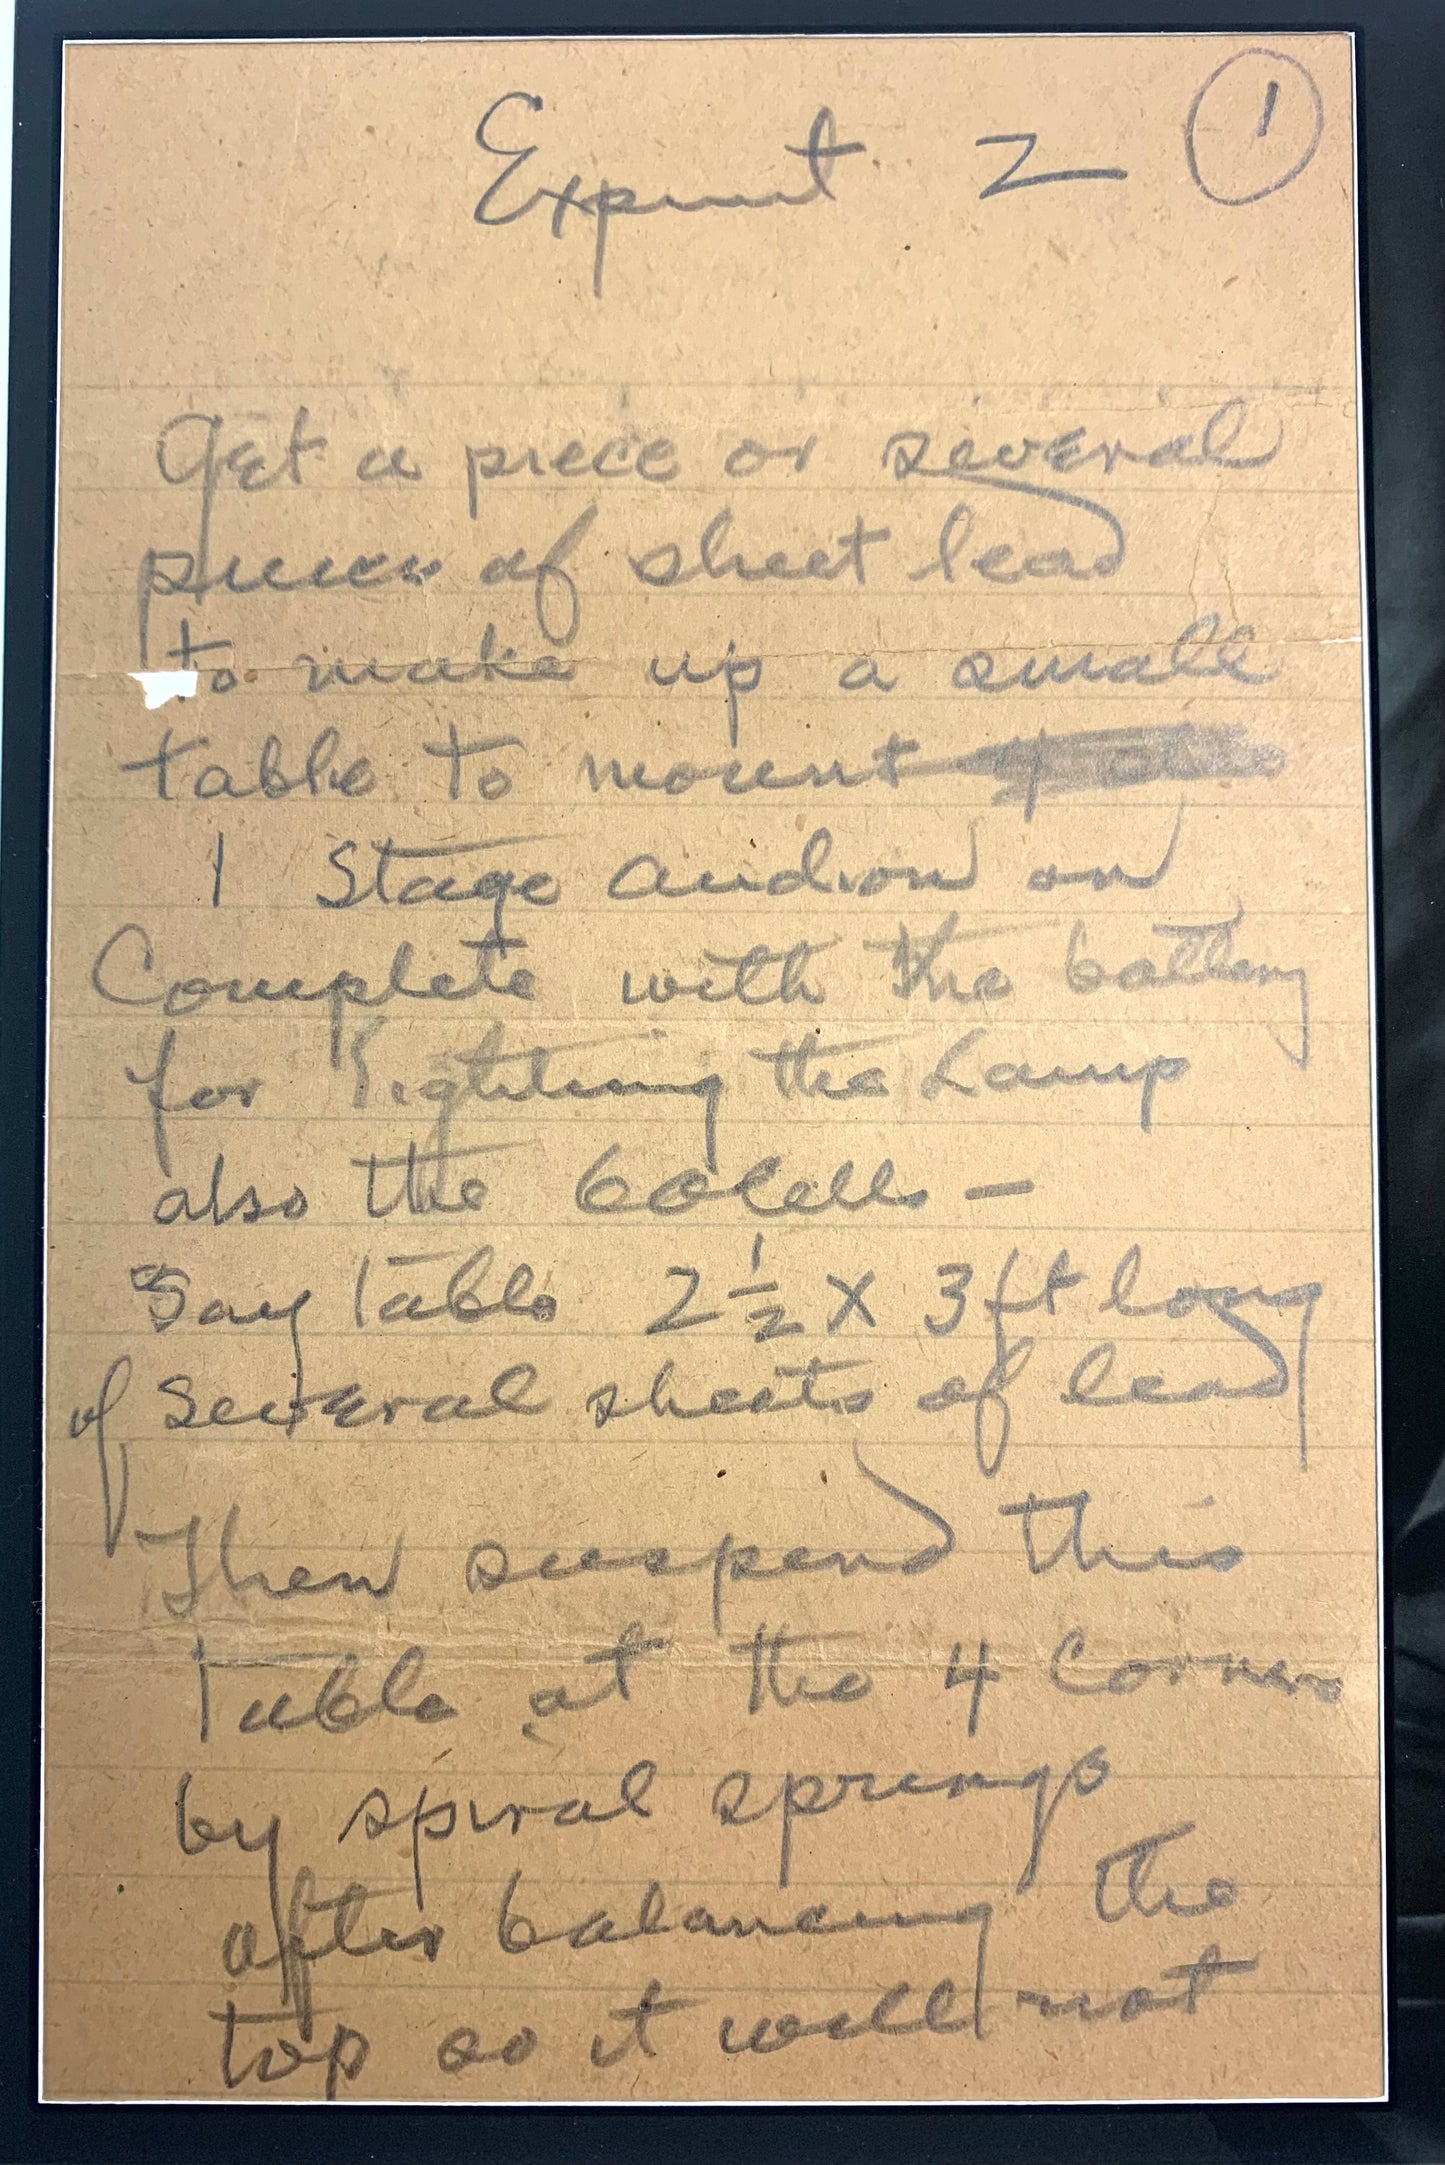 1
Expmt 2
Get a piece or several
pieces of sheet lead
to make up a small
table to mount
1 Stage audion on
Complete with the battery
for Lighting the Lamp
also the 60 Cells —
Say table 2½ x 3 ft long
of several sheets of lead
Then suspend this
table at the 4 Corners
by spiral springs
after balancing the
top so it will not